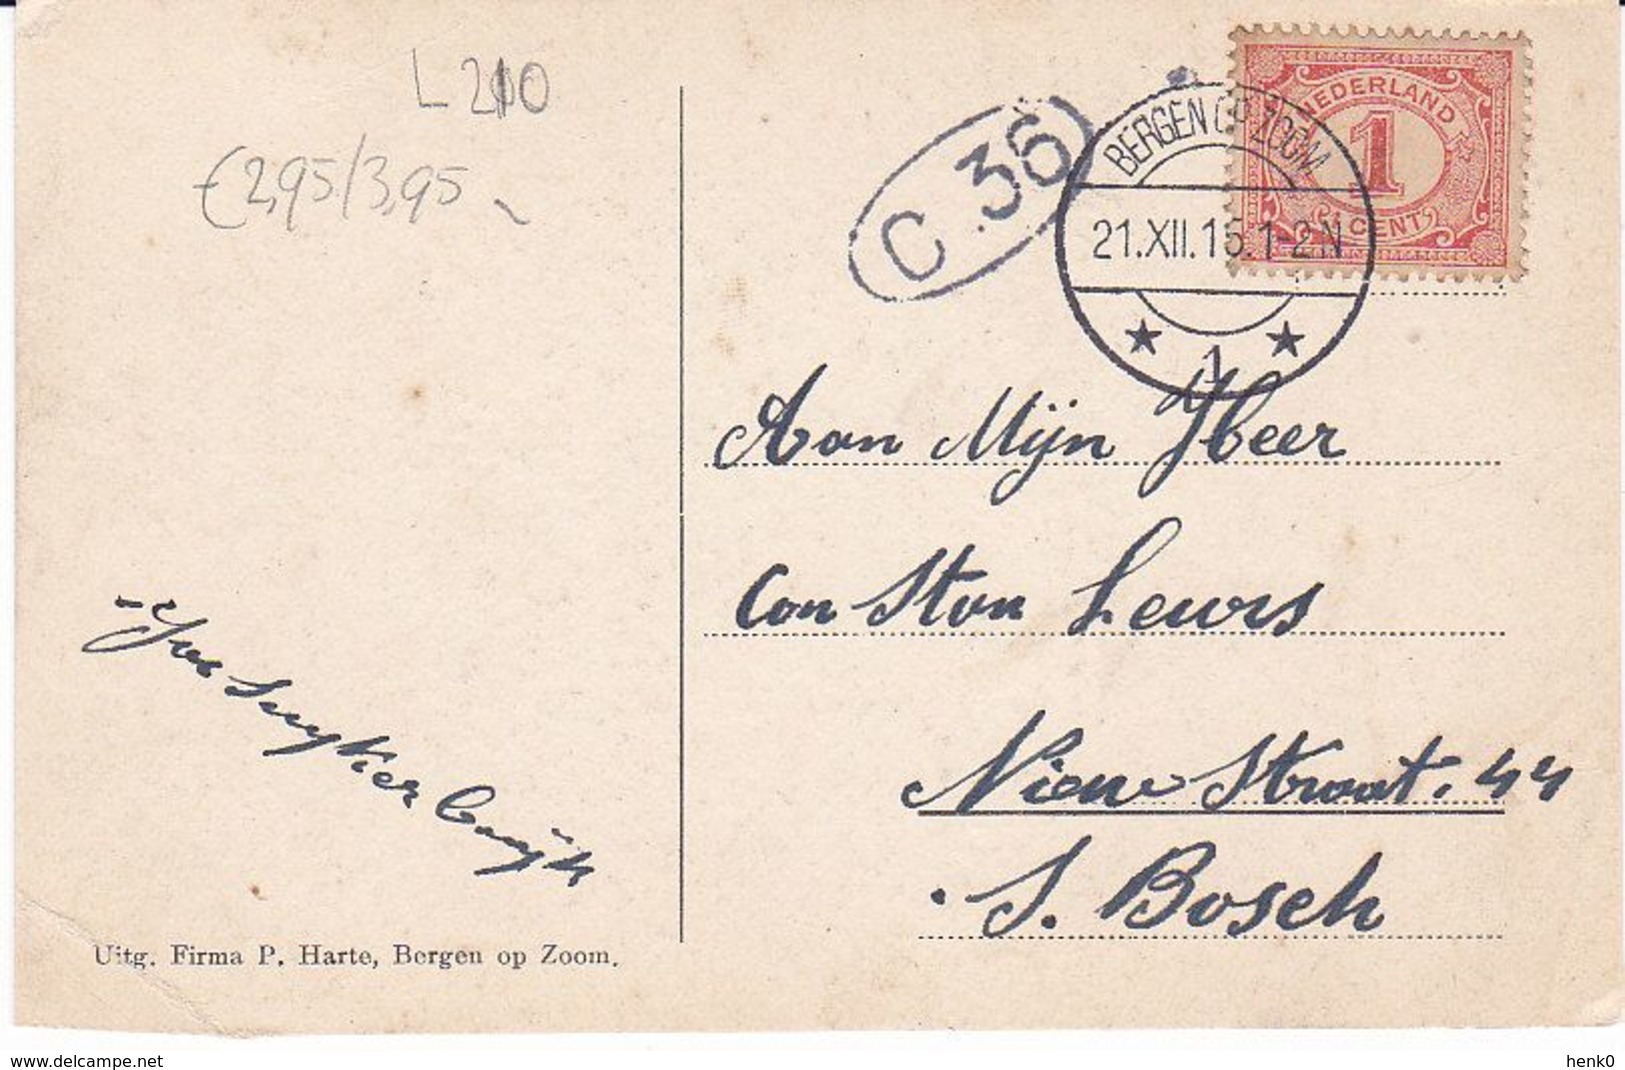 L 210
€2,95/3,95
C 36
BERGEN OP ZOOM
21.XII.15.1-2N
1
NEDERLAND
1
CENT
Aan Mijn Heer
Con Ston Leurs
Nieuw Straat. 44
S. Bosch
Suyker Buijk
Uitg. Firma P. Harte, Bergen op Zoom.
www.delcampe.net
henk0